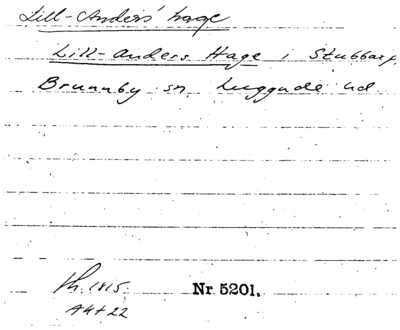 Lill-Anders' hage
Lill-Anders Hage i Stubbarp
Brunnby sn Luggude hd
Nr. 5201.